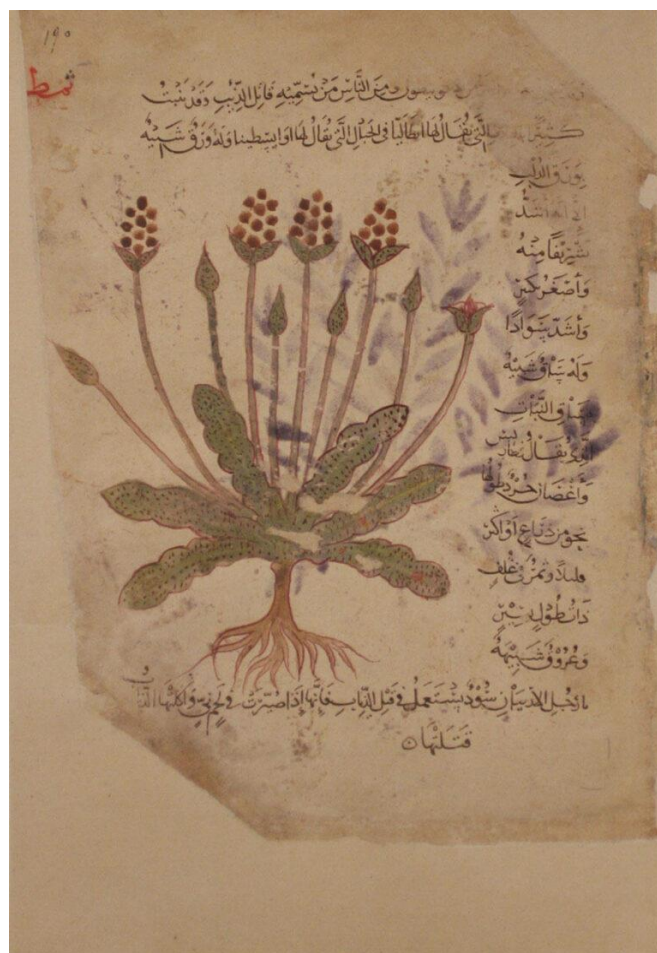 ١٩٥
ثمط
ومن الناس من يسميه قاتل الذيب وقد ينبت
التي يقال لها ايطاليا في الجبال التي يقال لها اوابسطينا وله ورق شبيه
بورق الدلب
الا انه اشد
تشريفا منه
وأصغر كثير
وأشد سوادا
وله ساق شبيه
بساق النبات
الذي يقال
وأغصان جرد طولها
نحو من ذراع او اكثر
قليلا وثمر في غلف
ذات طول يسير
وعروق شبيهة
بارجل الاربيان سود يستعمل في قتل الذياب فانها اذا صيرت في لحم ني واكلتها الذياب
قتلتها